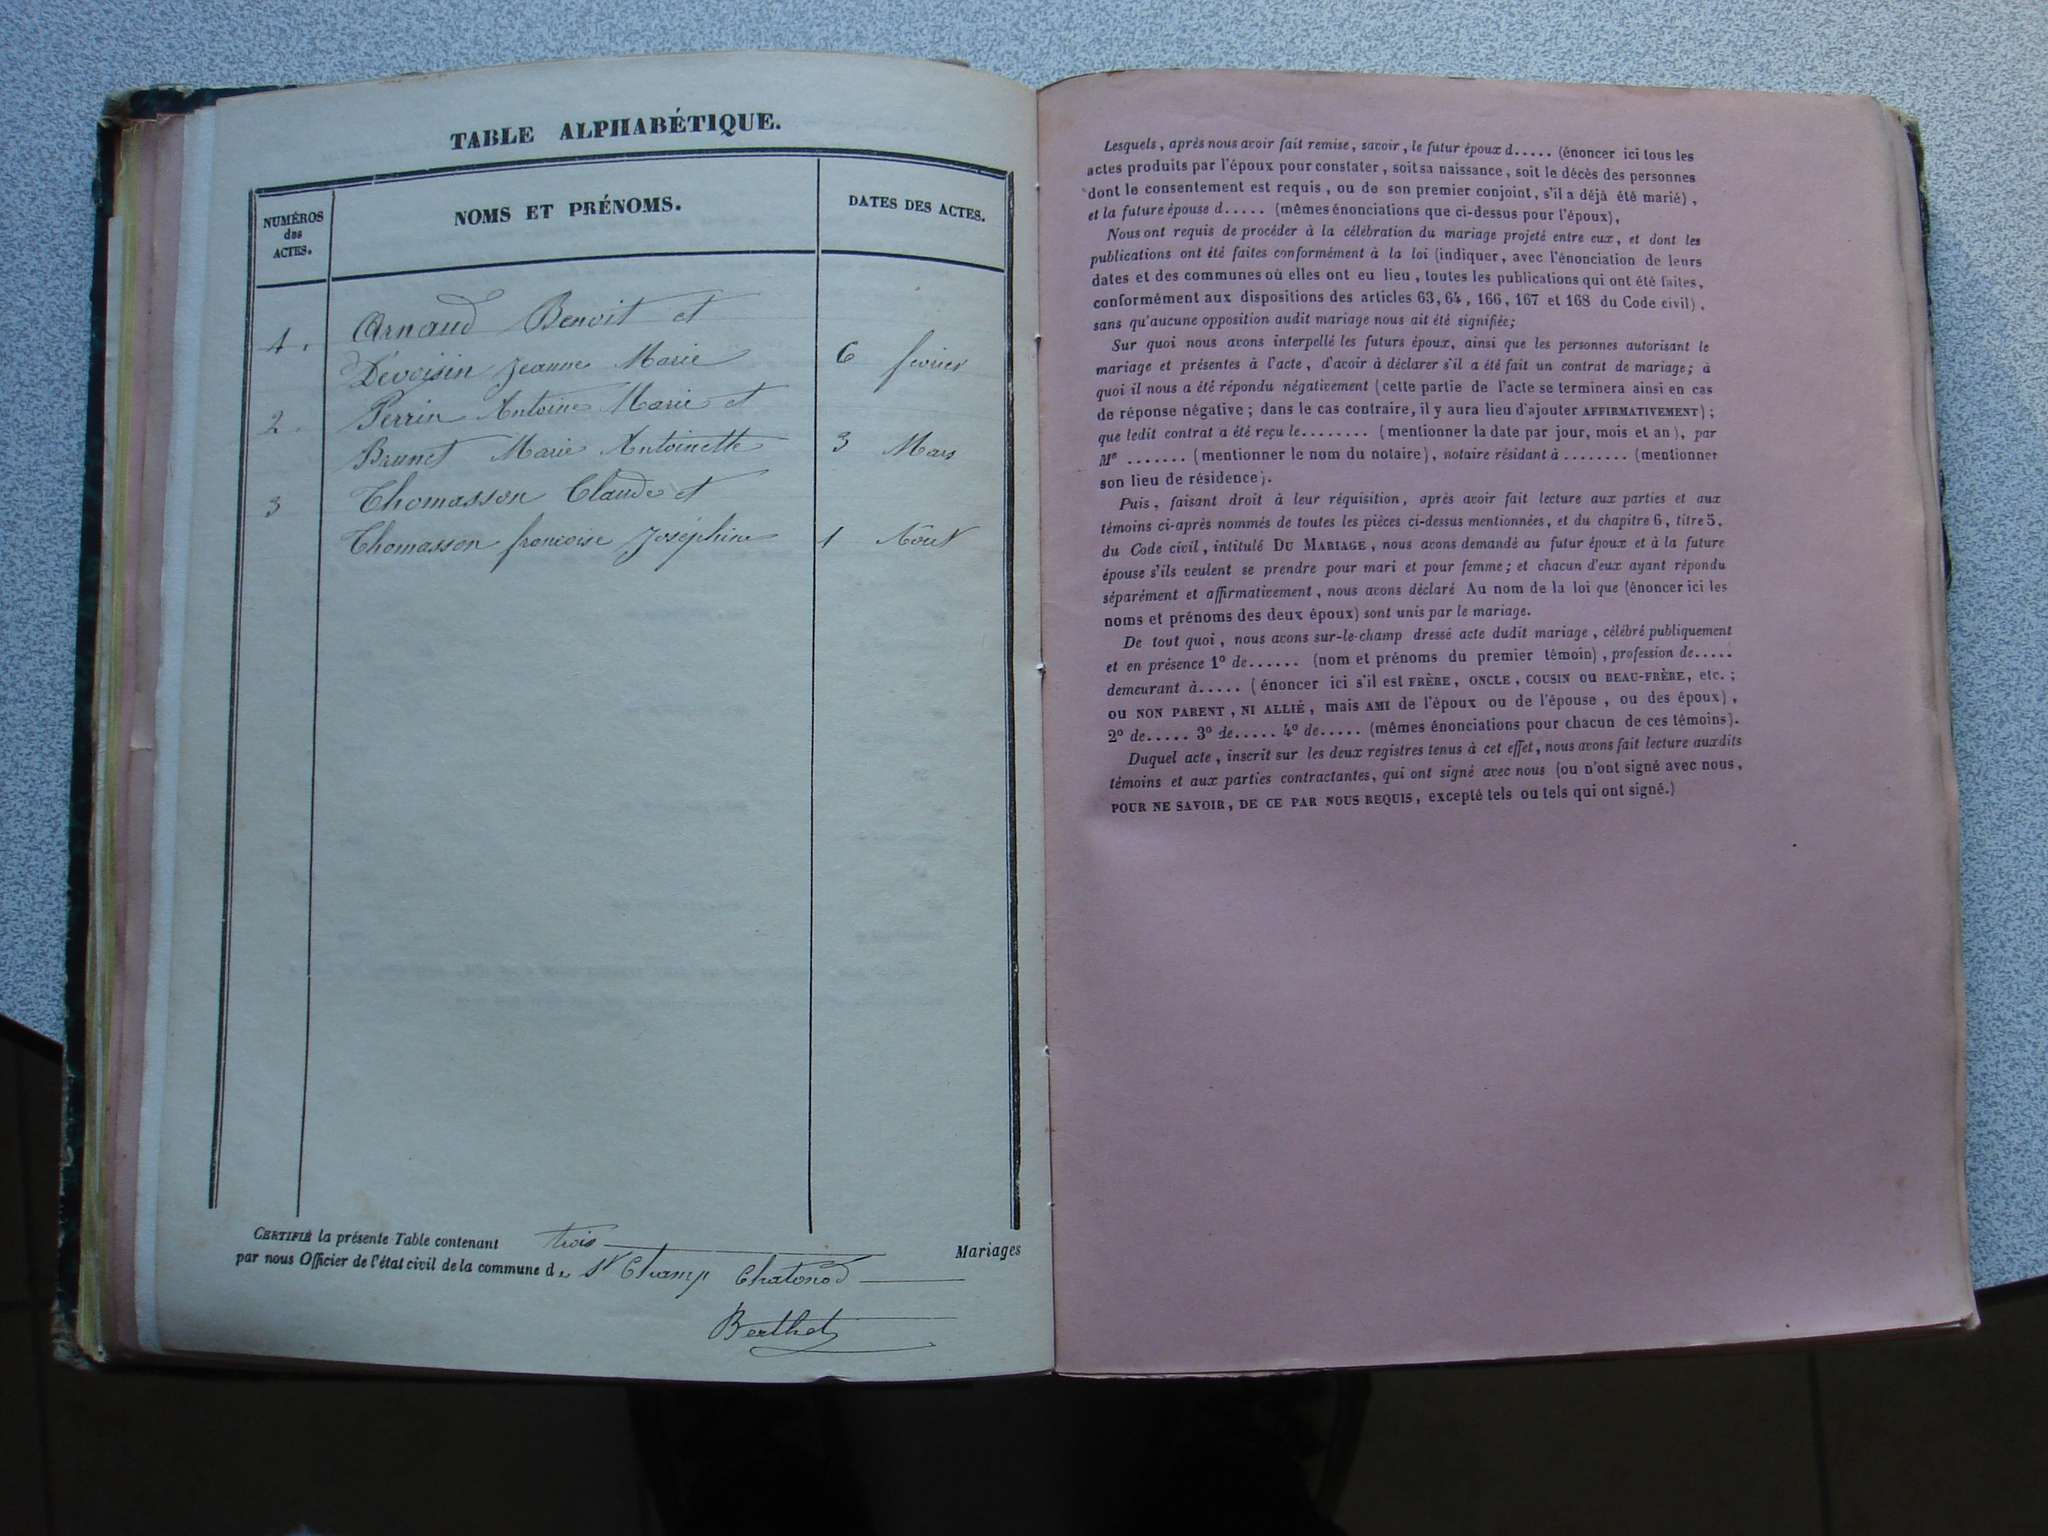 TABLE ALPHABÉTIQUE.
NUMÉROS
des
ACTES.
NOMS ET PRÉNOMS.
DATES DES ACTES.
1. Arnaud Benoit et
Devoisin Jeanne Marie 6 fevrier
2. Perrin Antoine Marie et
Brunet Marie Antoinette 3 Mars
3 Thomasson Claude et
Thomasson francoise Joséphine 1 Août
CERTIFIÉ la présente Table contenant trois Mariages
par nous Officier de l'état civil de la commune de St Champ Chatonod
Berthet
Lesquels, après nous avoir fait remise, savoir, le futur époux d..... (énoncer ici tous les
actes produits par l'époux pour constater, soit sa naissance, soit le décès des personnes
dont le consentement est requis, ou de son premier conjoint, s'il a déjà été marié),
et la future épouse d..... (mêmes énonciations que ci-dessus pour l'époux),
Nous ont requis de procéder à la célébration du mariage projeté entre eux, et dont les
publications ont été faites conformément à la loi (indiquer, avec l'énonciation de leurs
dates et des communes où elles ont eu lieu, toutes les publications qui ont été faites,
conformément aux dispositions des articles 63, 64, 166, 167 et 168 du Code civil),
sans qu'aucune opposition audit mariage nous ait été signifiée;
Sur quoi nous avons interpellé les futurs époux, ainsi que les personnes autorisant le
mariage et présentes à l'acte, d'avoir à déclarer s'il a été fait un contrat de mariage; à
quoi il nous a été répondu négativement (cette partie de l'acte se terminera ainsi en cas
de réponse négative; dans le cas contraire, il y aura lieu d'ajouter AFFIRMATIVEMENT);
que ledit contrat a été reçu le........ (mentionner la date par jour, mois et an), par
Me ....... (mentionner le nom du notaire), notaire résidant à ........ (mentionner
son lieu de résidence).
Puis, faisant droit à leur réquisition, après avoir fait lecture aux parties et aux
témoins ci-après nommés de toutes les pièces ci-dessus mentionnées, et du chapitre 6, titre 5,
du Code civil, intitulé DU MARIAGE, nous avons demandé au futur époux et à la future
épouse s'ils veulent se prendre pour mari et pour femme; et chacun d'eux ayant répondu
séparément et affirmativement, nous avons déclaré Au nom de la loi que (énoncer ici les
noms et prénoms des deux époux) sont unis par le mariage.
De tout quoi, nous avons sur-le-champ dressé acte dudit mariage, célébré publiquement
et en présence 1º de...... (nom et prénoms du premier témoin), profession de.....
demeurant à..... (énoncer ici s'il est FRÈRE, ONCLE, COUSIN OU BEAU-FRÈRE, etc.;
ou NON PARENT, NI ALLIÉ, mais AMI de l'époux ou de l'épouse, ou des époux),
2º de..... 3º de..... 4º de..... (mêmes énonciations pour chacun de ces témoins).
Duquel acte, inscrit sur les deux registres tenus à cet effet, nous avons fait lecture auxdits
témoins et aux parties contractantes, qui ont signé avec nous (ou n'ont signé avec nous,
POUR NE SAVOIR, DE CE PAR NOUS REQUIS, excepté tels ou tels qui ont signé.)